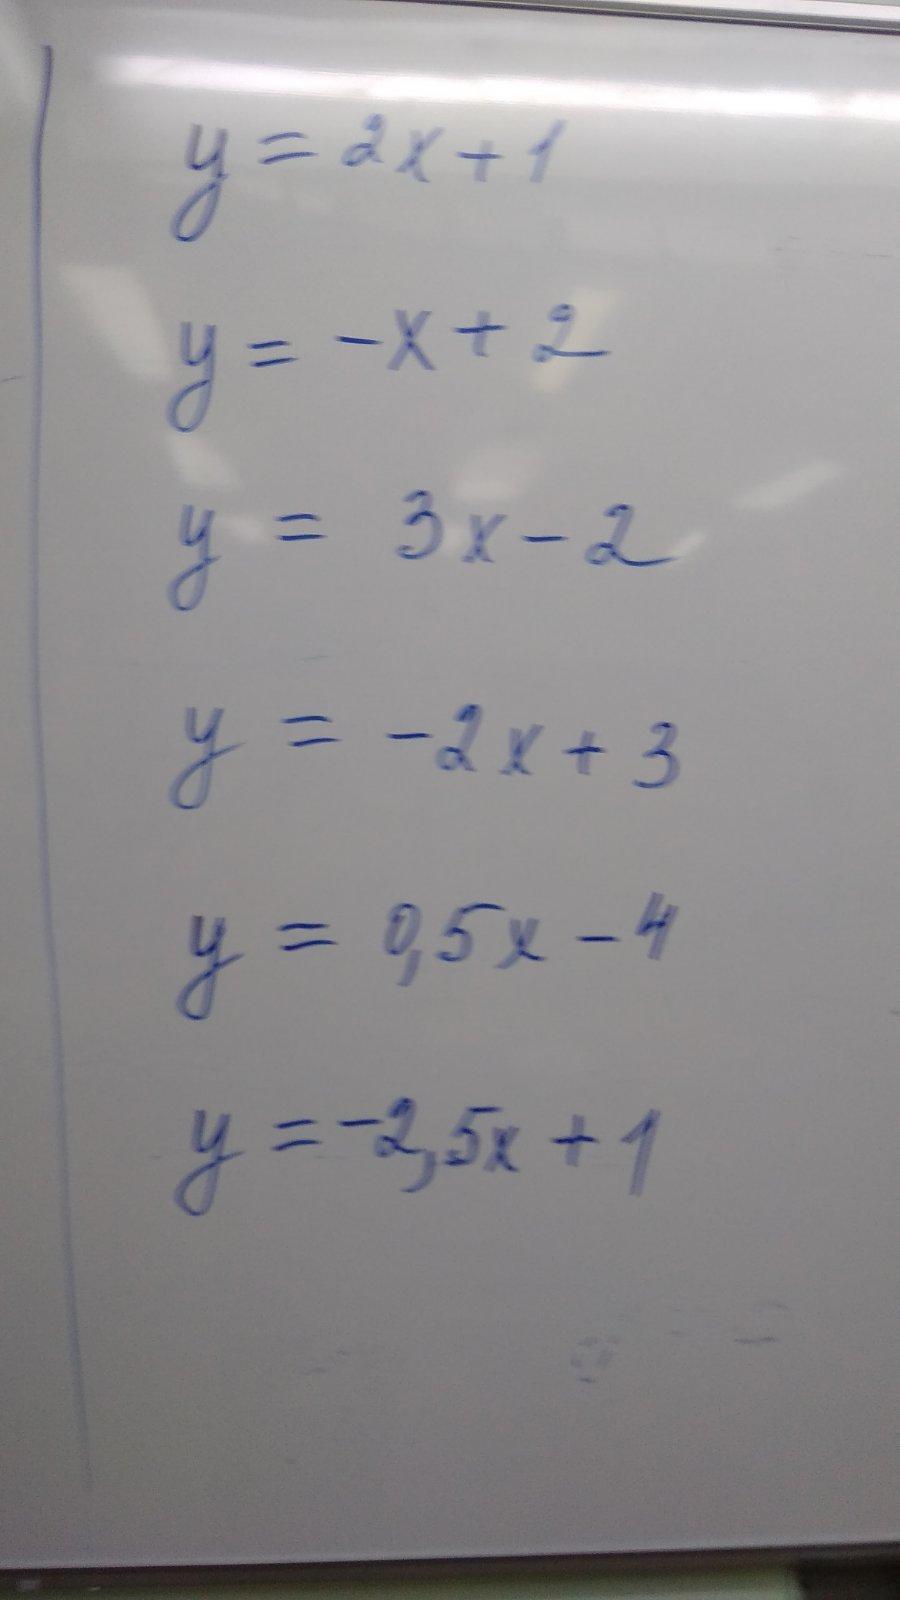 y = 2x + 1
y = -x + 2
y = 3x - 2
y = -2x + 3
y = 0,5x - 4
y = -2,5x + 1